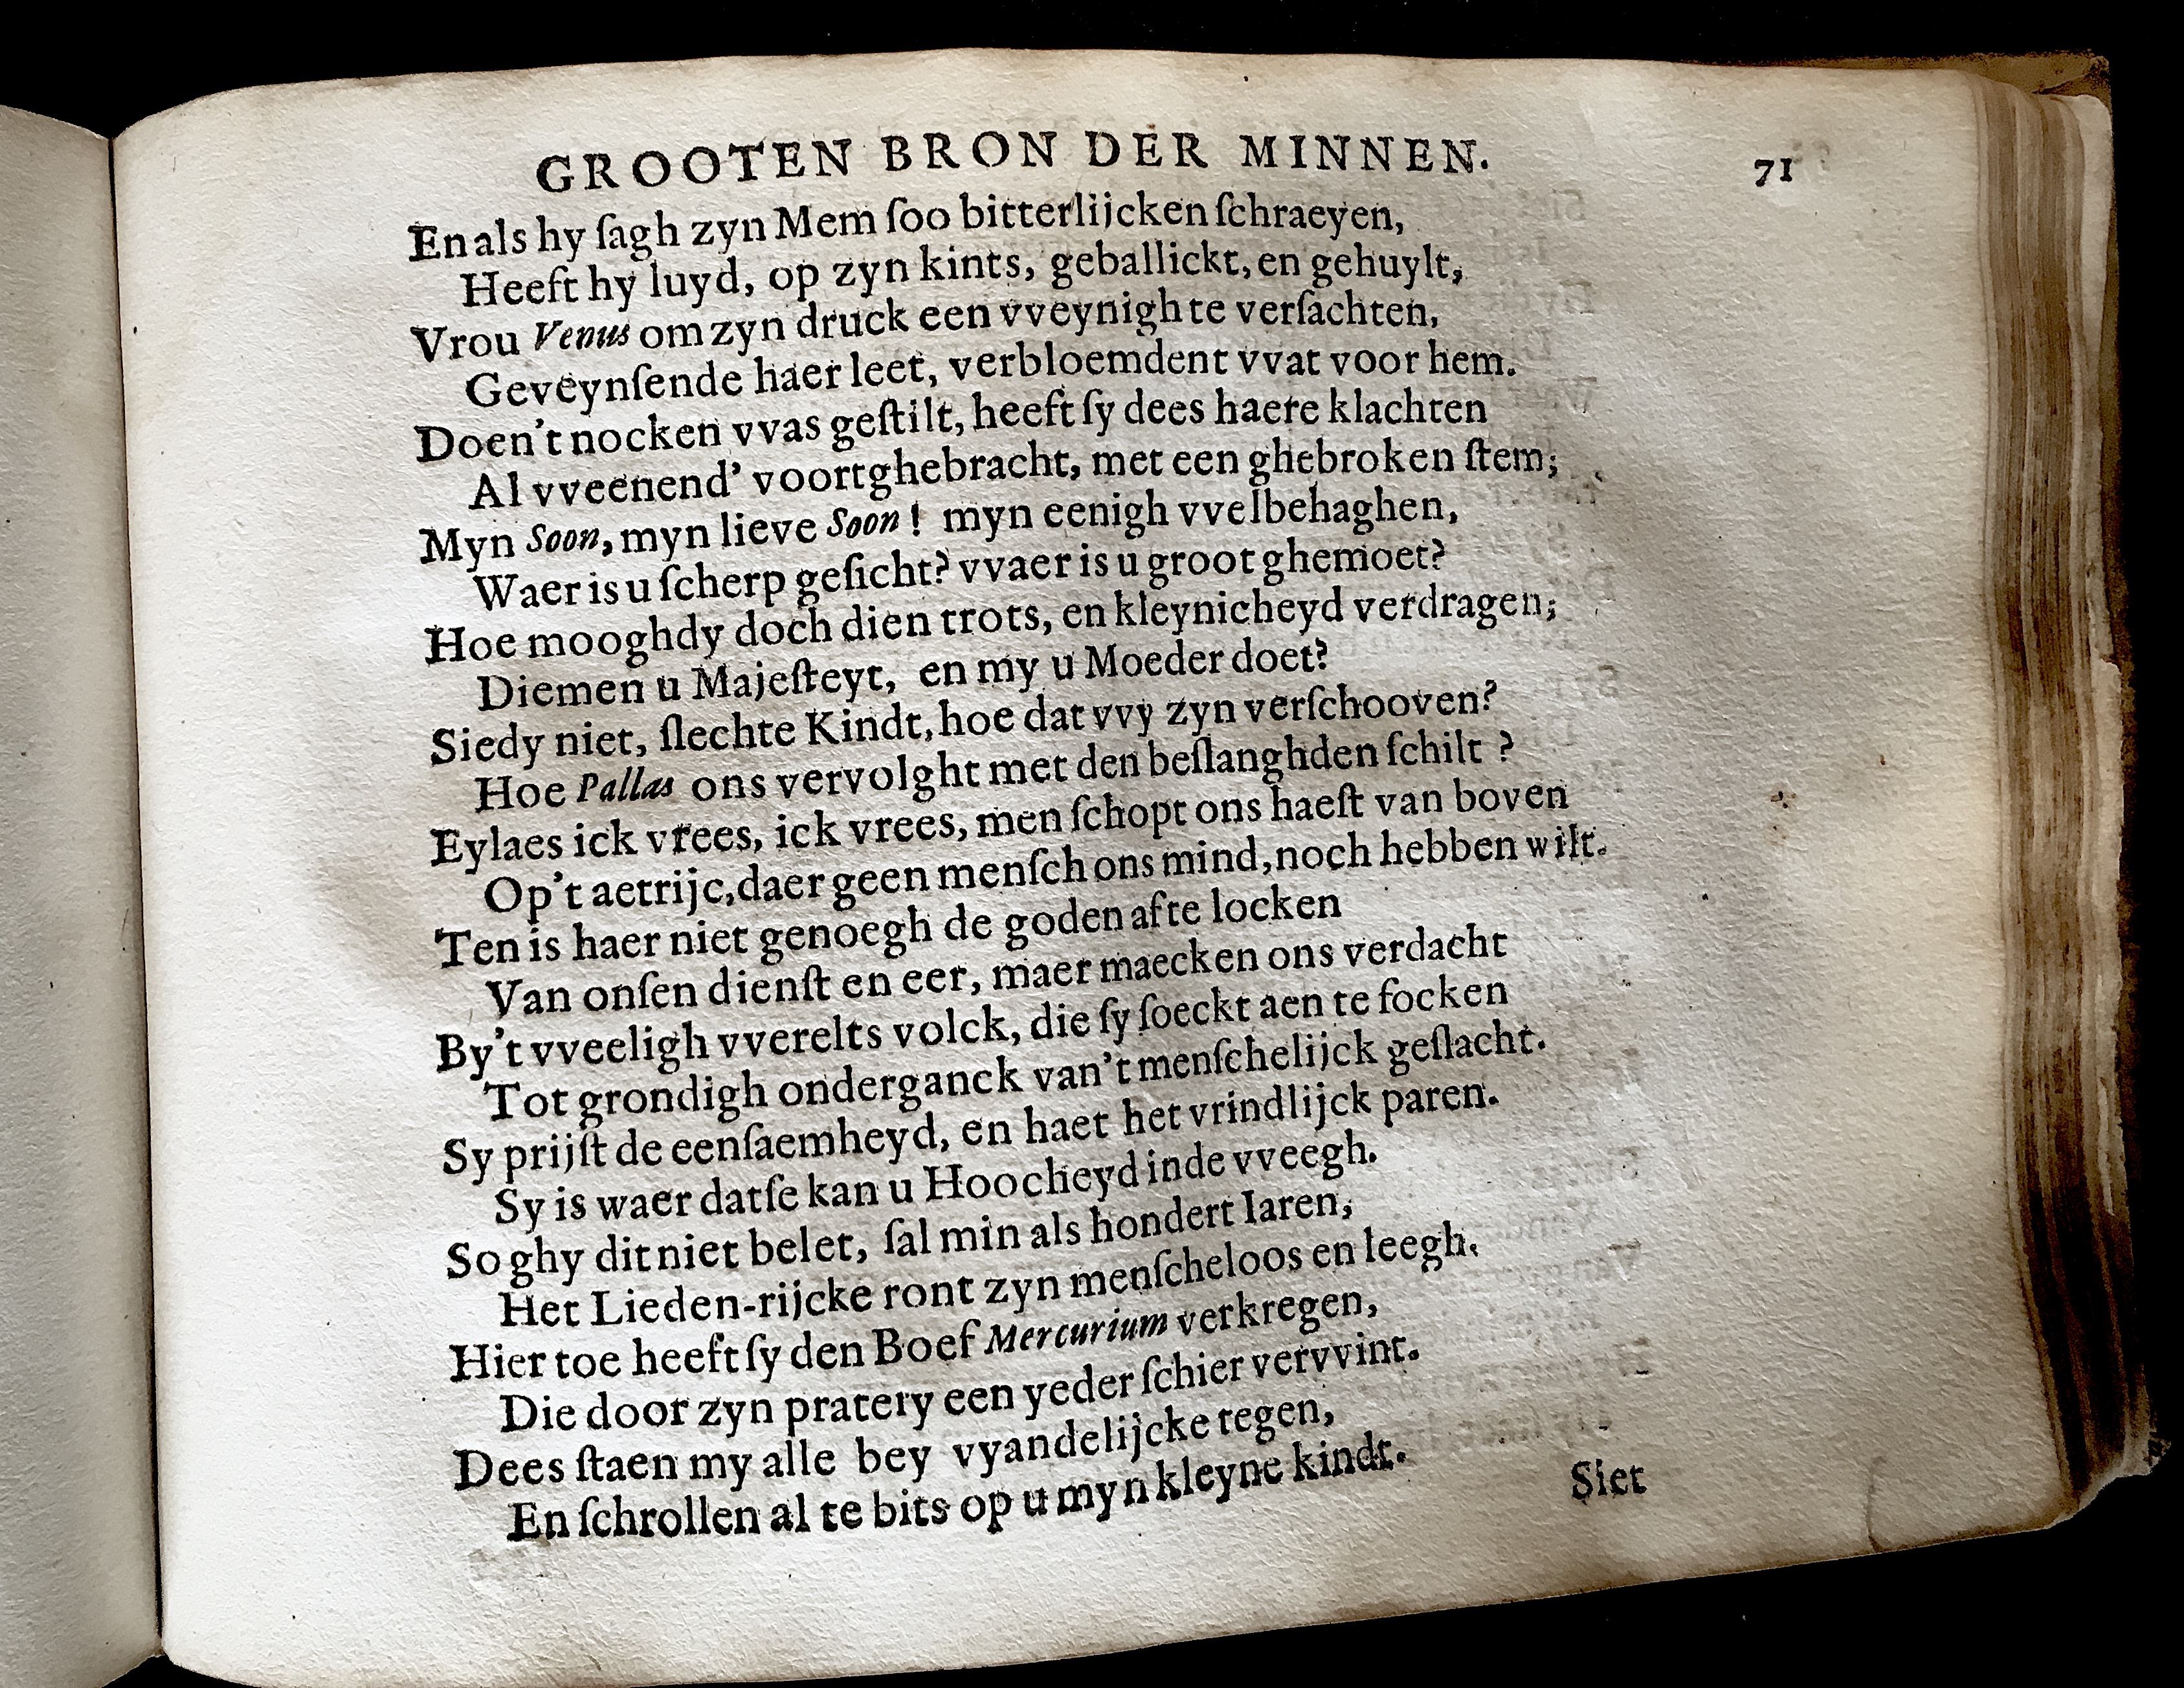 GROOTEN BRON DER MINNEN. 71
En als hy ſagh zyn Mem ſoo bitterlijcken ſchraeyen,
Heeft hy luyd, op zyn kints, geballickt, en gehuylt,
Vrou Venus om zyn druck een vveynigh te verſachten,
Geveynſende haer leet, verbloemdent vvat voor hem.
Doen't nocken vvas geſtilt, heeft ſy dees haere klachten
Al vveenend' voortghebracht, met een ghebroken ſtem;
Myn Soon, myn lieve Soon! myn eenigh vvelbehaghen,
Waer is u ſcherp geſicht? vvaer is u groot ghemoet?
Hoe mooghdy doch dien trots, en kleynicheyd verdragen;
Diemen u Majeſteyt, en my u Moeder doet?
Siedy niet, ſlechte Kindt, hoe dat vvy zyn verſchooven?
Hoe Pallas ons vervolght met den beſlanghden ſchilt?
Eylaes ick vrees, ick vrees, men ſchopt ons haeſt van boven
Op't aetrijc, daer geen menſch ons mind, noch hebben wilt.
Ten is haer niet genoegh de goden af te locken
Van onſen dienſt en eer, maer maecken ons verdacht
By't vveeligh vverelts volck, die ſy ſoeckt aen te focken
Tot grondigh onderganck van't menſchelijck geſlacht.
Sy prijſt de eenſaemheyd, en haet het vrindlijck paren.
Sy is waer datſe kan u Hoocheyd inde vveegh.
So ghy dit niet belet, ſal min als hondert Iaren,
Het Lieden-rijcke ront zyn menſcheloos en leegh.
Hier toe heeft ſy den Boef Mercurium verkregen,
Die door zyn pratery een yeder ſchier vervvint.
Dees ſtaen my alle bey vyandelijcke tegen,
En ſchrollen al te bits op u myn kleyne kindt.
Siet